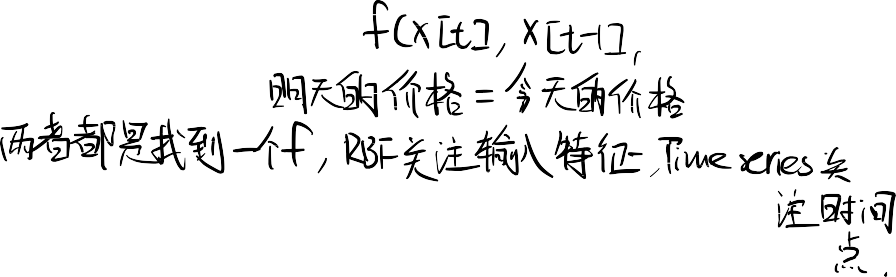 f(x[t], x[t-1],
明天的价格 = 今天的价格
两者都是找到一个f, RBF关注输入特征, Time series关
注时间
点.